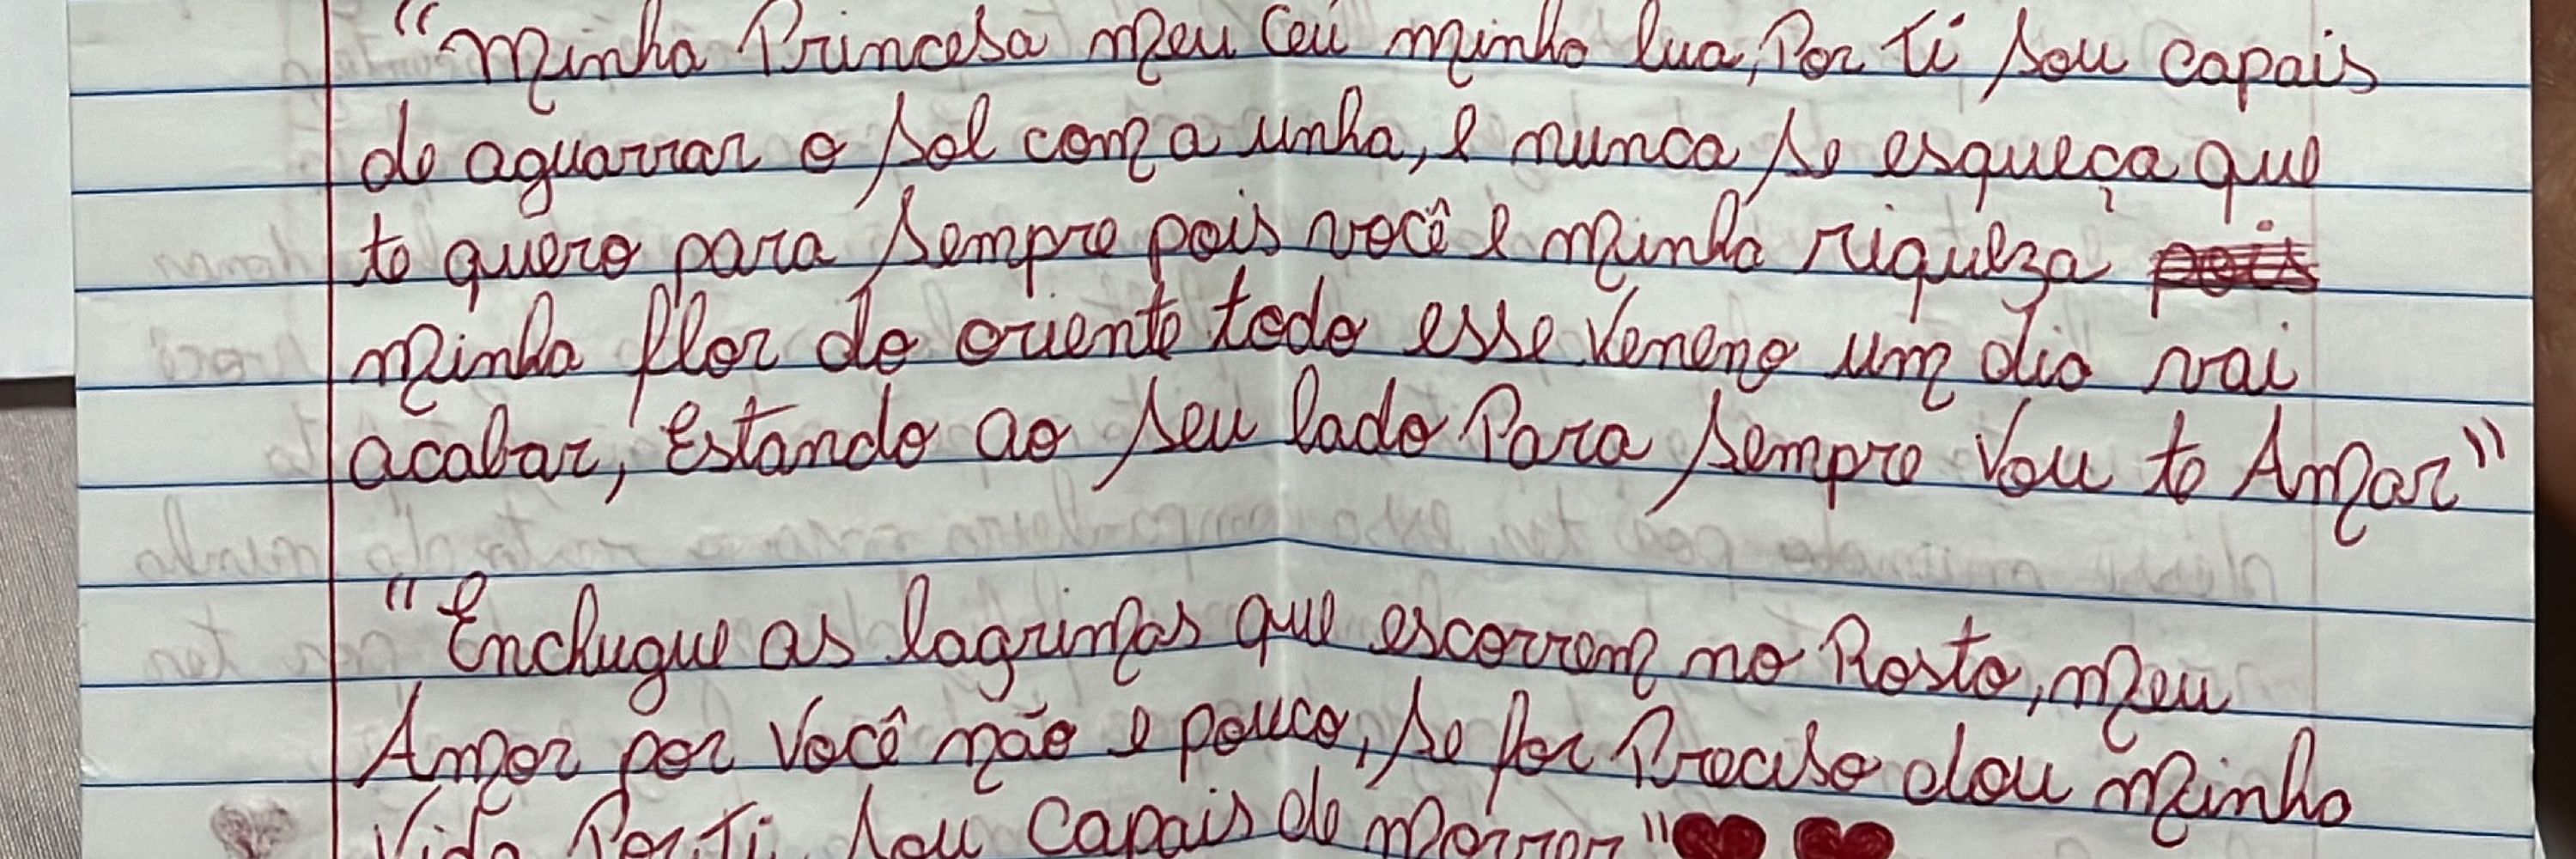 "Minha Princesa meu Ceú minha lua, Por ti sou capais
de aguarrar o sol com a unha, e nunca se esqueça que
te quero para sempre pois você e minha riqueza pois
minha flor do oriente todo esse Veneno um dia vai
acabar, Estando ao seu lado Para sempre Vou te Amar"
"Enchugue as lagrimas que escorrem no Rosto, meu
Amor por Você não e pouco, se for Preciso dou minha
Vida Por Ti sou Capais de morrer"